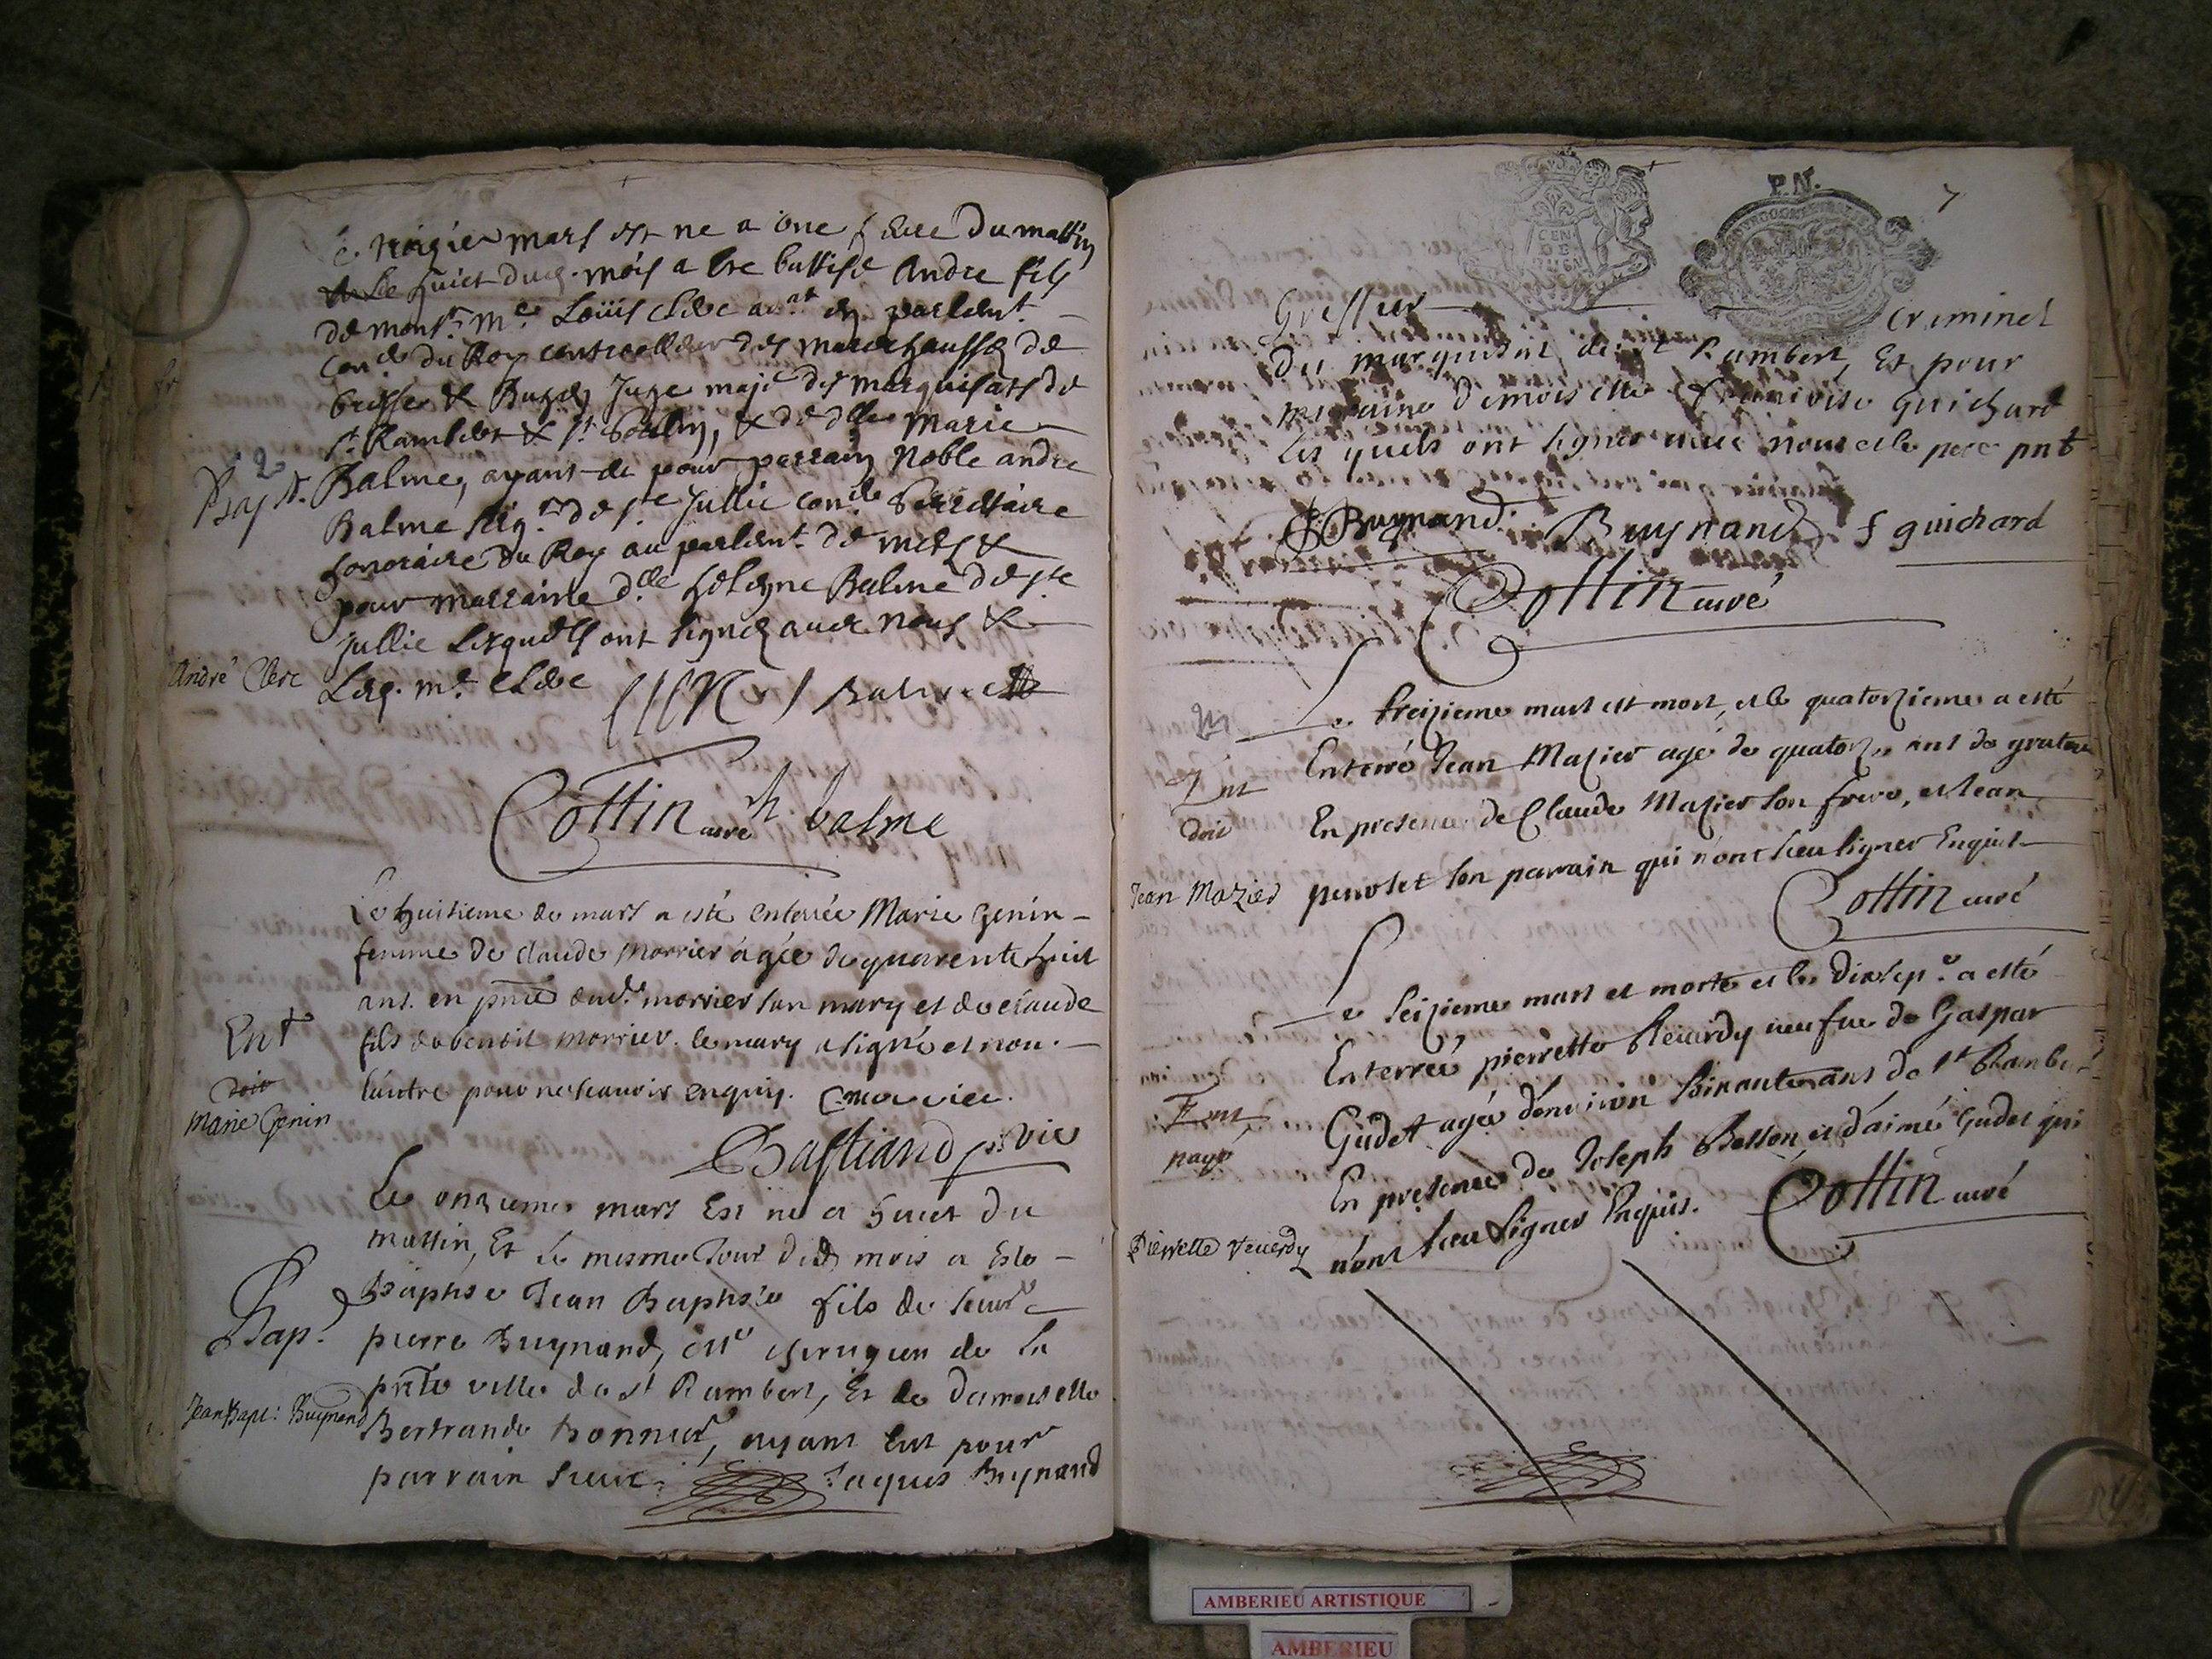 mars est ne a une heure du mattin
Le huict dud. mois a etre battisé Andre fils
de monsr. me. Loüis Clerc en parlemt.
du Roy controolleur des marechaussés de
bresse & Bugey Juge maje des marquisats de
st. Rambert & st. & de dlle Marie
Bapt.
Balme, ayant pour parrain Noble andre
Balme seigr. de ste Jullie conlr. Secretaire
honoraire du Roy au parlemt. de mets &
pour marraine dlle helegne Balme de ste
Jullie Lesquells ont signez avec nous &
André Clerc
Led. me. Clerc
Clerc Balme
Cottin curé h. balme
Le huitieme de mars a esté enterrée Marie Genin
femme de claude Morrier agée de quarente huit
ans. en pnce dud. morrier son mary et de claude
Ent
fils de benoit morrier. le mary a signé et non
doit
l'autre pour ne scauoir enquis. C morrier.
Marie Genin
Bastiand vic
Le onzieme mars Est né a huict du
mattin, Et le mesme Jour dud mois a este
Baptise Jean Baptiste fils de sieur
Bap.
pierre Buynand, me chirugien de la
pnte ville de st Rambert, Et de damoiselle
Jean Bapt: Buynand
Bertrande bonnier, ayant Eut pour
parrain sieur Jaques Buynand
P.N.
7
GEN
DE
Greffier criminel
Du marquisat de st Rambert, Et pour
maraine demoiselle Francoise Guichard
les quels ont signes avec nous et le pere pnt
Buynand. Buynand f guichard
Cottin curé
Le treizieme mars est mort, et le quatorzieme a esté
Enterré Jean Mazier agé de quatorze ans de grattou
Ent
doit
En presence de Claude Mazier son frere, et Jean
Jean Mazier
perrolet son parrain qui n'ont sceu signer Enquis
Cottin curé
Le seizieme mars et morte et le dixsepe. a esté
Enterreé pierrette Reverdy veufve de Gaspar
Ent
payé
Gudet ageé d'environ soixante ans de st Rambert
En presence de Joseph Besson et d'aimé Gudet qui
Pierrette Reverdy
n'ont sceu signer Enquis. Cottin curé
AMBERIEU ARTISTIQUE
AMBERIEU